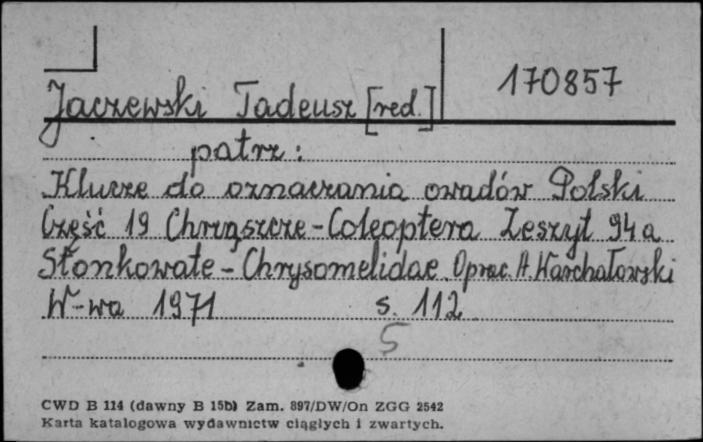 170857
Jaczewski Tadeusz [red.]
patrz:
Klucze do oznaczania owadów Polski
Część 19 Chrząszcze - Coleoptera Zeszyt 94a
Stonkowate - Chrysomelidae Oprac. A. Warchałowski
W-wa 1971 s. 112
5
CWD B 114 (dawny B 15b) Zam. 897/DW/On ZGG 2542
Karta katalogowa wydawnictw ciągłych i zwartych.